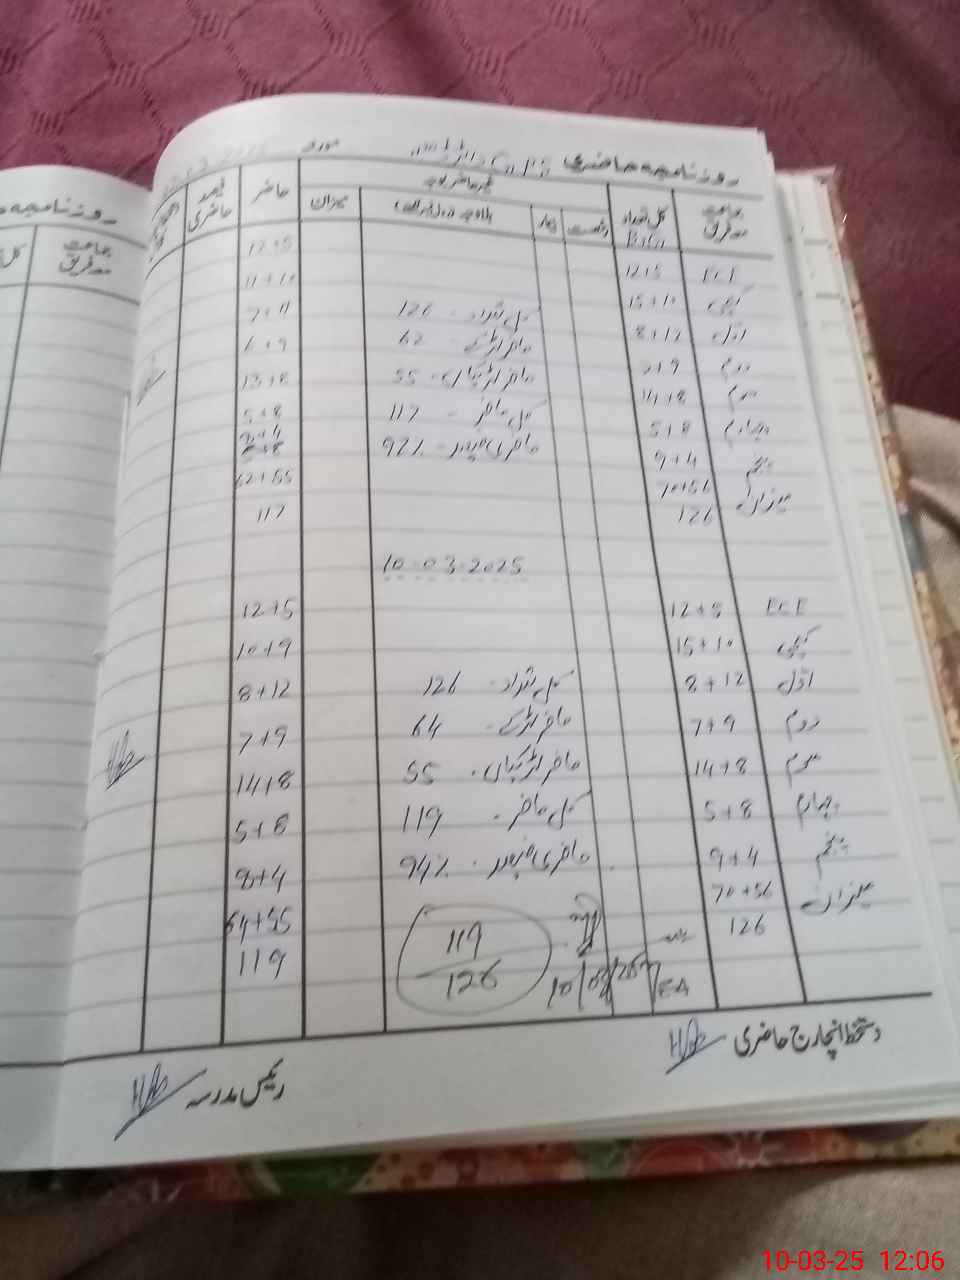 روزنامچہ حاضری
مورخہ
جماعت معہ فریق
کل تعداد
غیر حاضر بوجہ
رخصت
بیمار
بلا وجہ
میزان
حاضر
فیصد حاضری
ECE 12+5 12+5
کچی 15+10 11+10
اوّل 8+12 کل تعداد - 126 7+11
دوم 7+9 حاضر لڑکے 62 6+9
سوم 14+8 حاضر لڑکیاں - 55 13+8
چہارم 5+8 کل حاضر - 117 5+8
پنجم 9+4 حاضری فیصد - 92% 8+4
میزان 70+56 62+55
126 117
10-03-2025
ECE 12+5 12+5
کچی 15+10 10+9
اوّل 8+12 کل تعداد - 126 8+12
دوم 7+9 حاضر لڑکے - 64 7+9
سوم 14+8 حاضر لڑکیاں - 55 14+8
چہارم 5+8 کل حاضر - 119 5+8
پنجم 9+4 حاضری فیصد - 94% 8+4
میزان 70+56 64+55
126 119
119
126
10/03/25
دستخط انچارج حاضری
رئیس مدرسہ
روزنامچہ
جماعت معہ فریق
کل
10-03-25 12:06